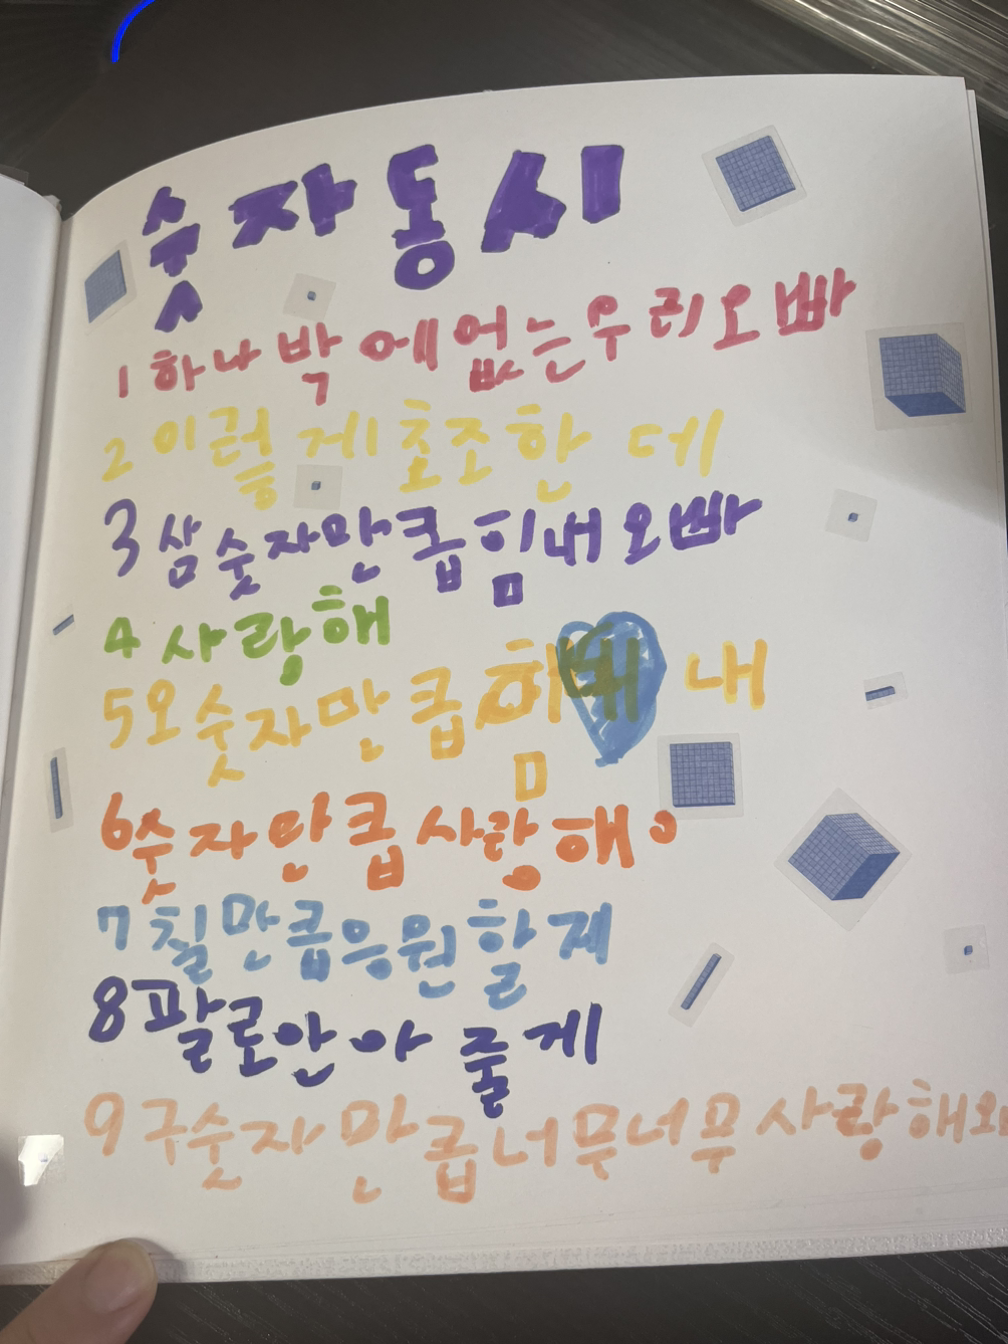 숫자동시
1 하나박에없는우리오빠
2 이렇게초조한데
3 삼숫자만큽힘내오빠
4 사랑해
5 오숫자만큽힘 내
6 숫자만큽사랑해
7 칠만큽응원할게
8 팔로안아줄게
9 구숫자만큽너무너무사랑해